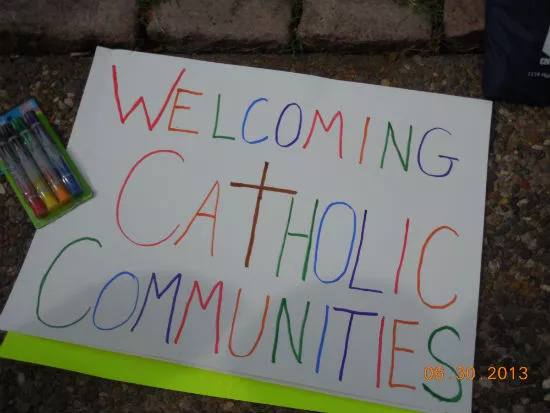 WELCOMING
CATHOLIC
COMMUNITIES
06.30.2013